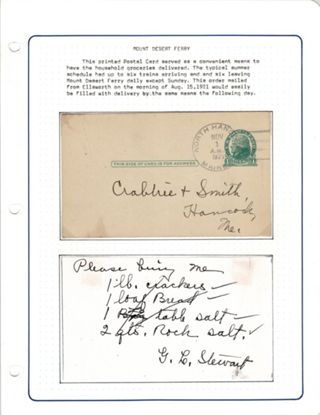 MOUNT DESERT FERRY
This printed Postal Card served as a convenient means to
have the household groceries delivered. The typical summer
schedule had up to six trains arriving and and six leaving
Mount Desert Ferry daily except Sunday. This order mailed
from Ellsworth on the morning of Aug. 15,1921 would easily
be filled with delivery by the same means the following day.
NORTH HAN
NOV
A.M.
MAINE
THIS SIDE OF CARD IS FOR ADDRESS
Crabtree & Smith,
Hancock,
Me.
Please bring me
1 lb. crackers
1 loaf Bread
1 table salt
2 qts. Rock salt.
G. L. Stewart